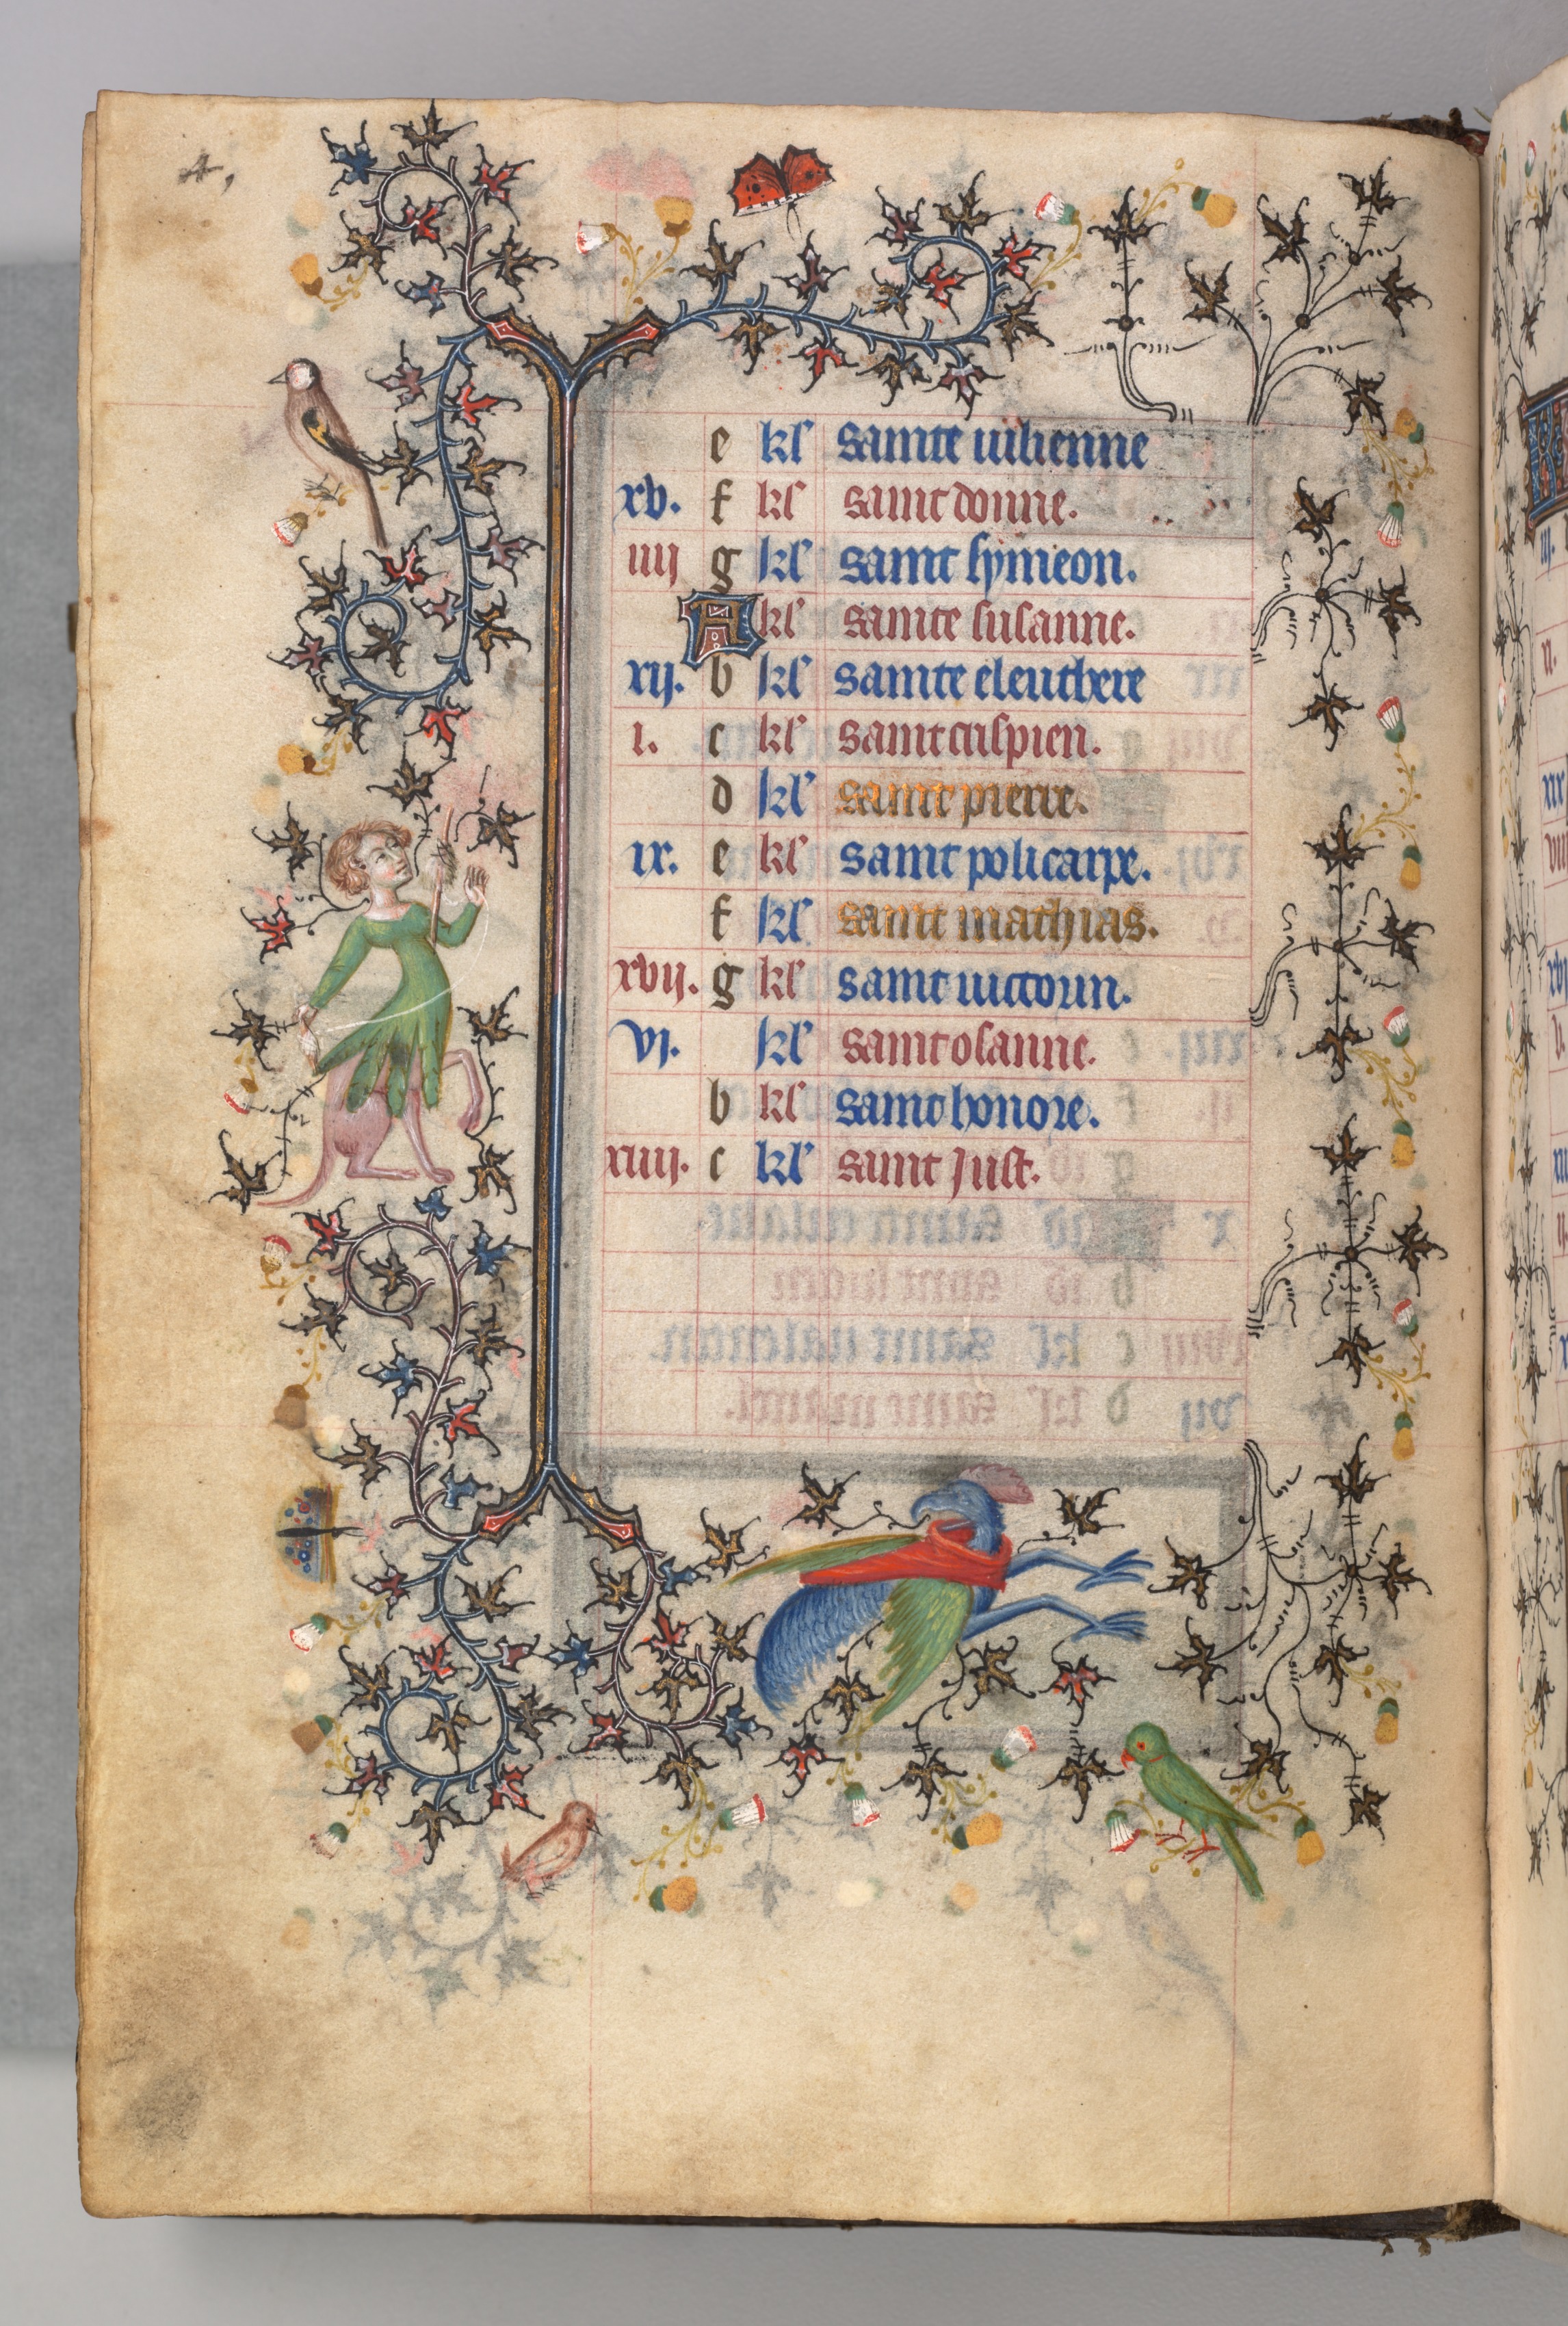 4,
e kl sainte iulienne
xv. f kl saint donne.
iiij g kl saint symeon.
A kl sainte susanne.
xij. b kl sainte eleuthere
i. c kl saint crispien.
d kl saint pierre.
ix. e kl saint policarpe.
f kl saint mathias.
xvij. g kl saint victorin.
vj. kl saint osanne.
b kl saint honore.
xiiij. c kl saint just.